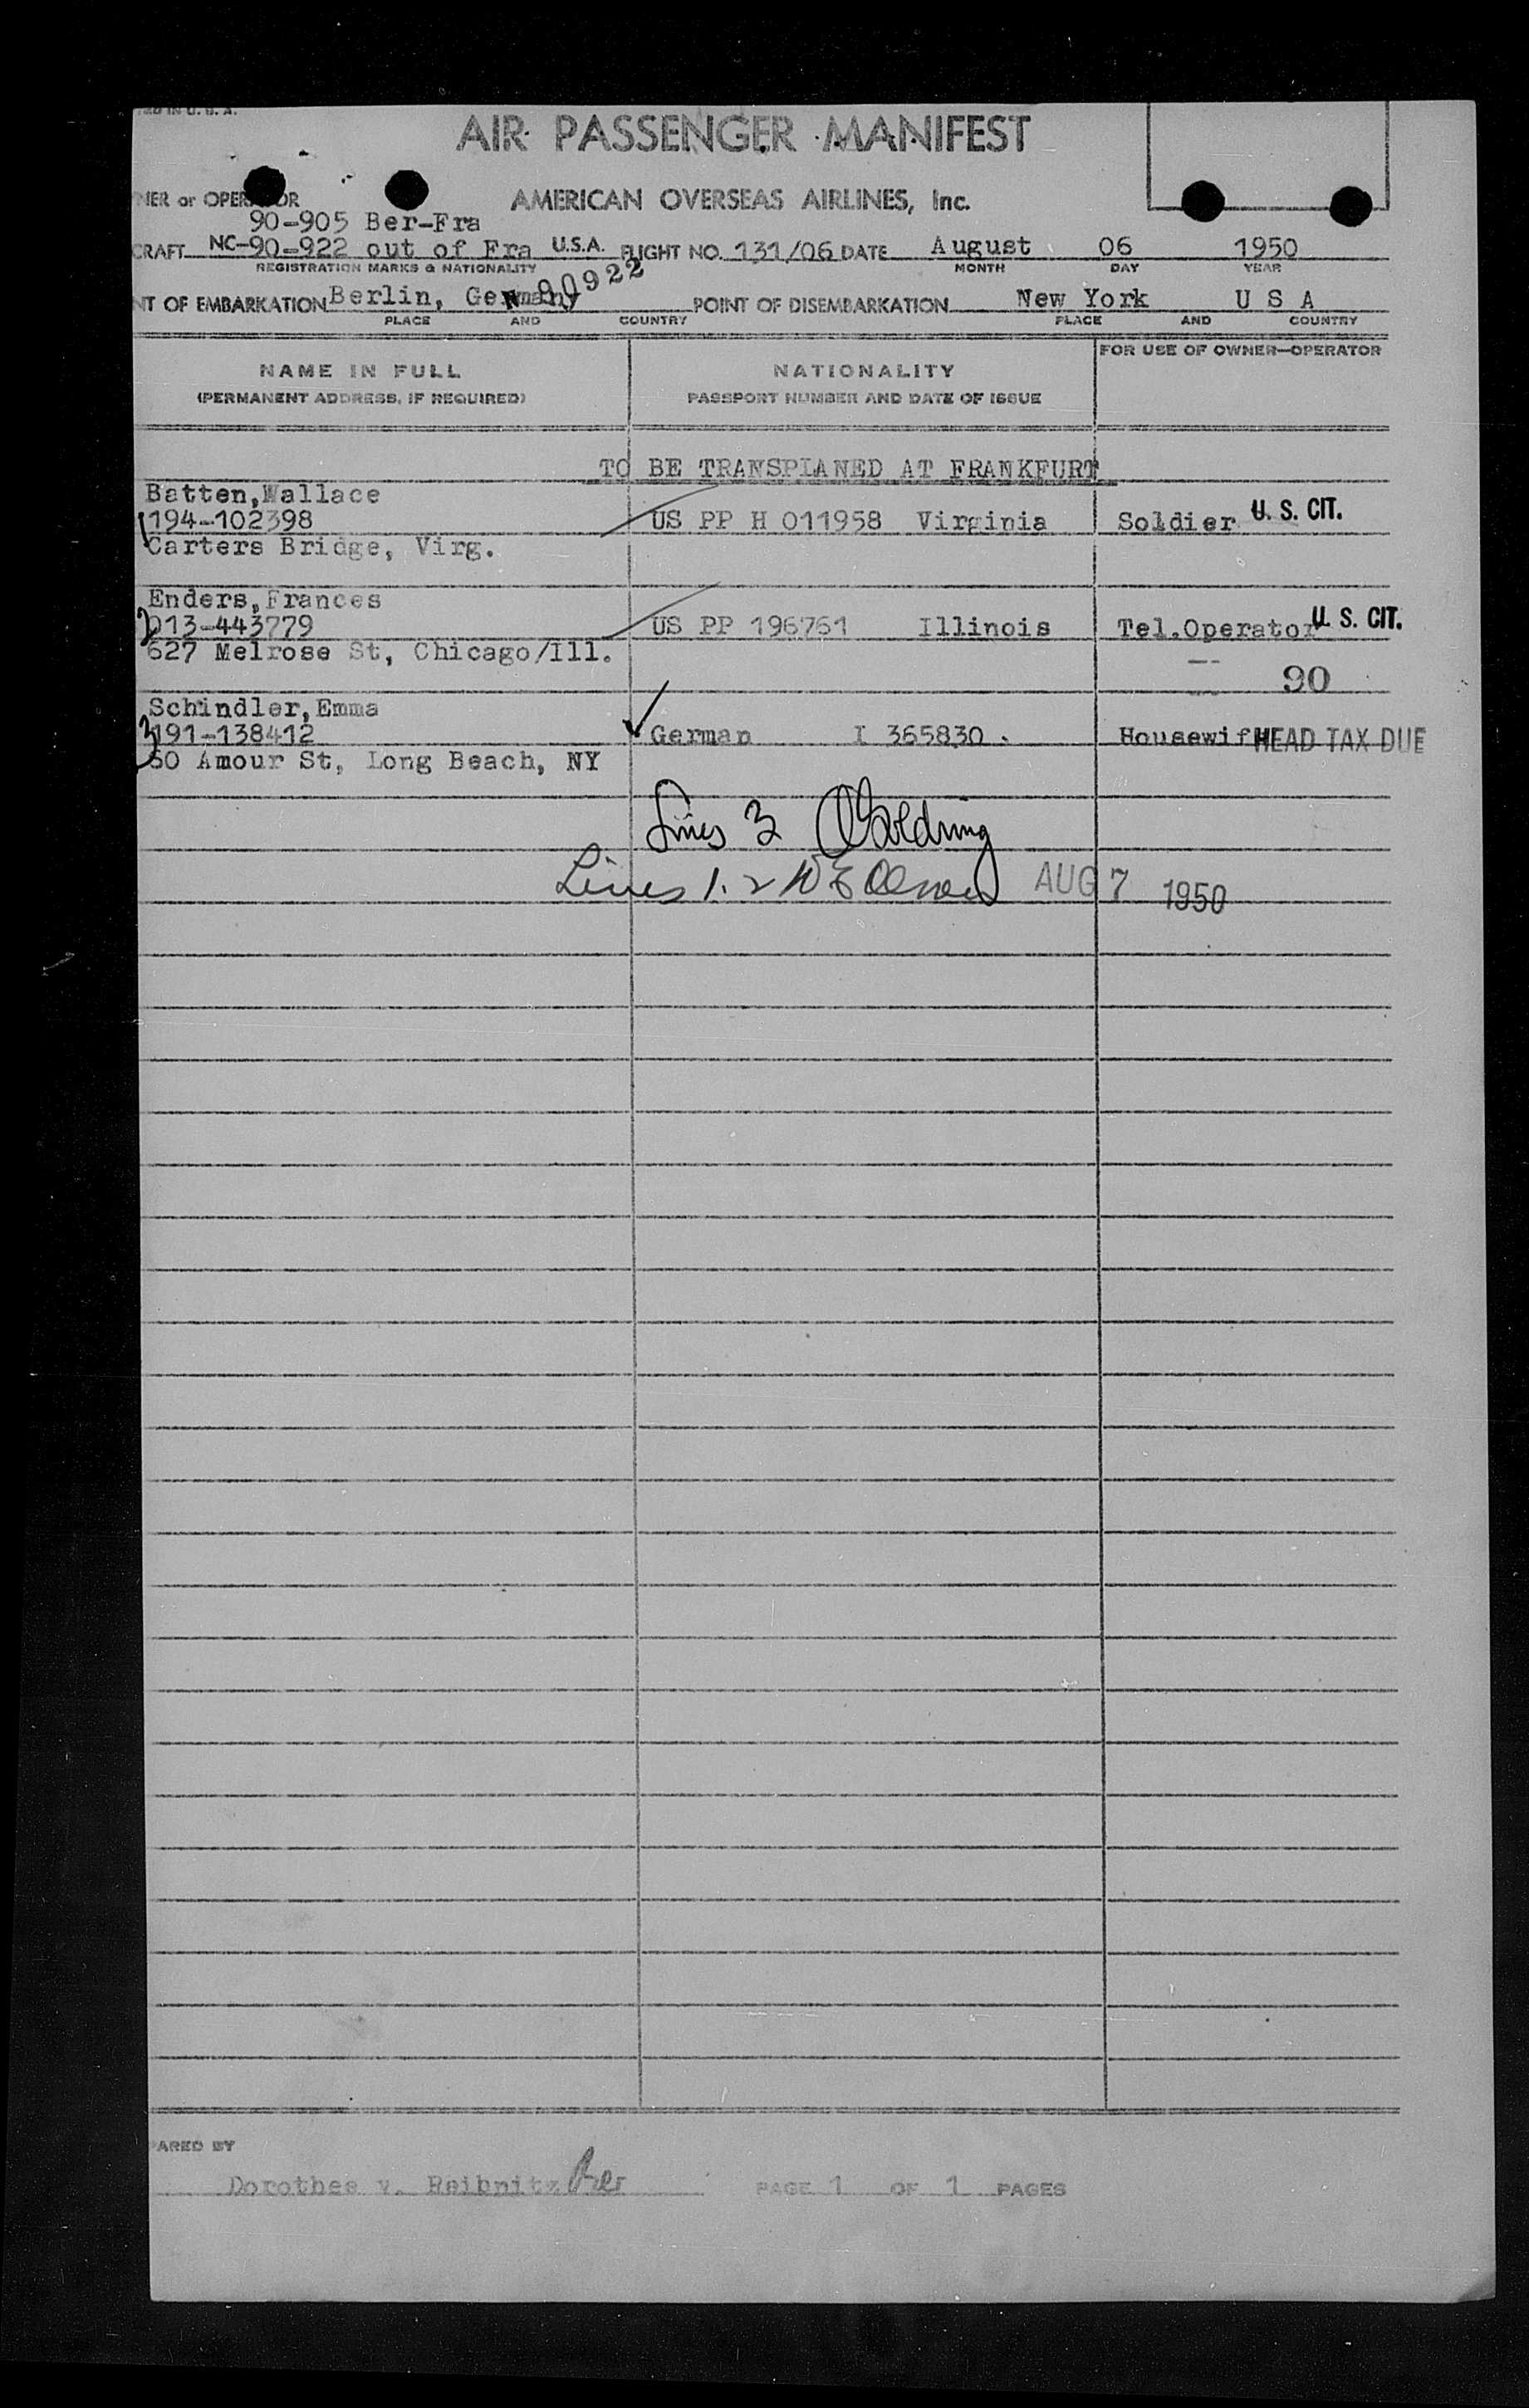 AIR PASSENGER MANIFEST
NER or OPERATOR AMERICAN OVERSEAS AIRLINES, Inc.
90-905 Ber-Fra
CRAFT NC-90-922 out of Fra U.S.A. FLIGHT NO. 131/06 DATE August 06 1950
REGISTRATION MARKS & NATIONALITY MONTH DAY YEAR
N 90922
NT OF EMBARKATION Berlin, Germany POINT OF DISEMBARKATION New York U S A
PLACE AND COUNTRY PLACE AND COUNTRY
NAME IN FULL NATIONALITY FOR USE OF OWNER—OPERATOR
(PERMANENT ADDRESS, IF REQUIRED) PASSPORT NUMBER AND DATE OF ISSUE
TO BE TRANSPLANED AT FRANKFURT
Batten,Wallace
1 194-102398 US PP H 011958 Virginia Soldier U. S. CIT.
Carters Bridge, Virg.
Enders,Frances
2 013-443779 US PP 196761 Illinois Tel.Operator U. S. CIT.
627 Melrose St, Chicago/Ill.
90
Schindler,Emma
3 191-138412 German I 365830 . Housewife HEAD TAX DUE
50 Amour St, Long Beach, NY
Lines 3 Golding
Lines 1. 2 AUG 7 1950
ARED BY
Dorothea v. Reibnitz PAGE 1 OF 1 PAGES